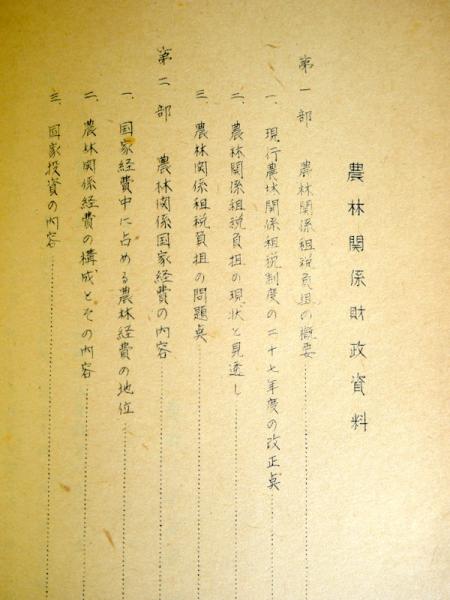 農林関係財政資料
第一部 農林関係租税負担の概要
一、現行農林関係租税制度の二十七年度の改正点
二、農林関係租税負担の現状と見透し
三、農林関係租税負担の問題点
第二部 農林関係国家経費の内容
一、国家経費中に占める農林経費の地位
二、農林関係経費の構成とその内容
三、国家投資の内容